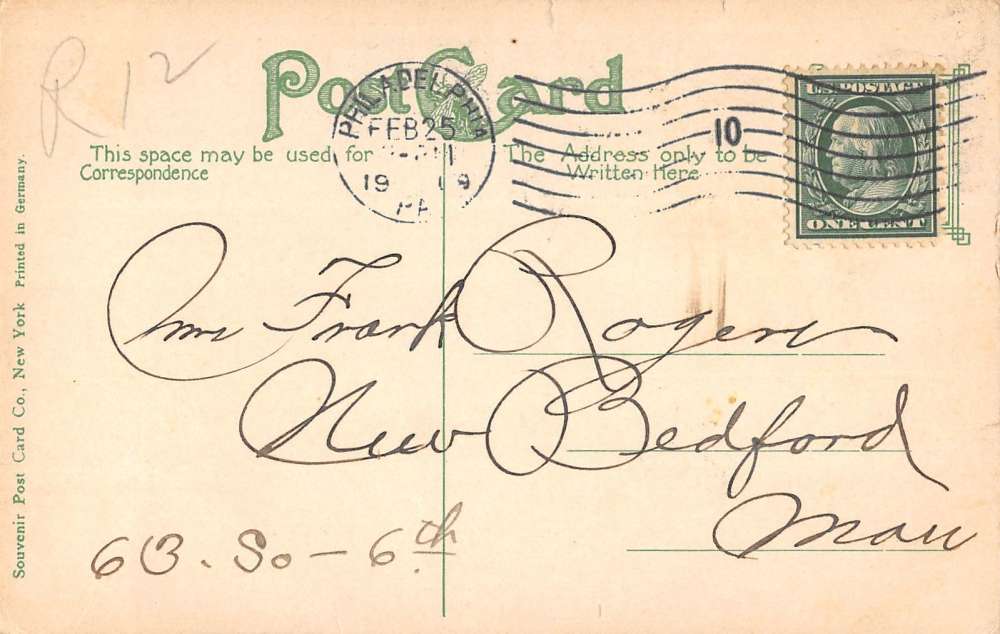 R 12
Post Card
PHILADELPHIA
FEB 25
19 09
PA
10
U.S. POSTAGE
ONE CENT
This space may be used for
Correspondence
The Address only to be
Written Here
Mrs Frank Rogers
New Bedford
Mass
63. So - 6th
Souvenir Post Card Co., New York Printed in Germany.